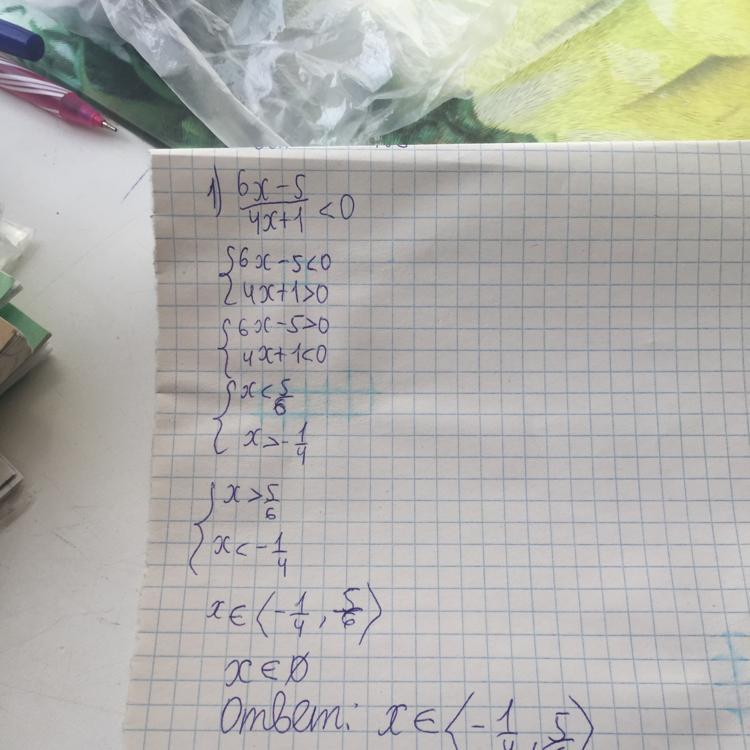 1) (6x-5)/(4x+1) < 0
{6x-5<0
{4x+1>0
{6x-5>0
{4x+1<0
{x<5/6
{x>-1/4
{x>5/6
{x<-1/4
x∈⟨-1/4, 5/6⟩
x∈∅
Ответ: x∈⟨-1/4, 5/6⟩